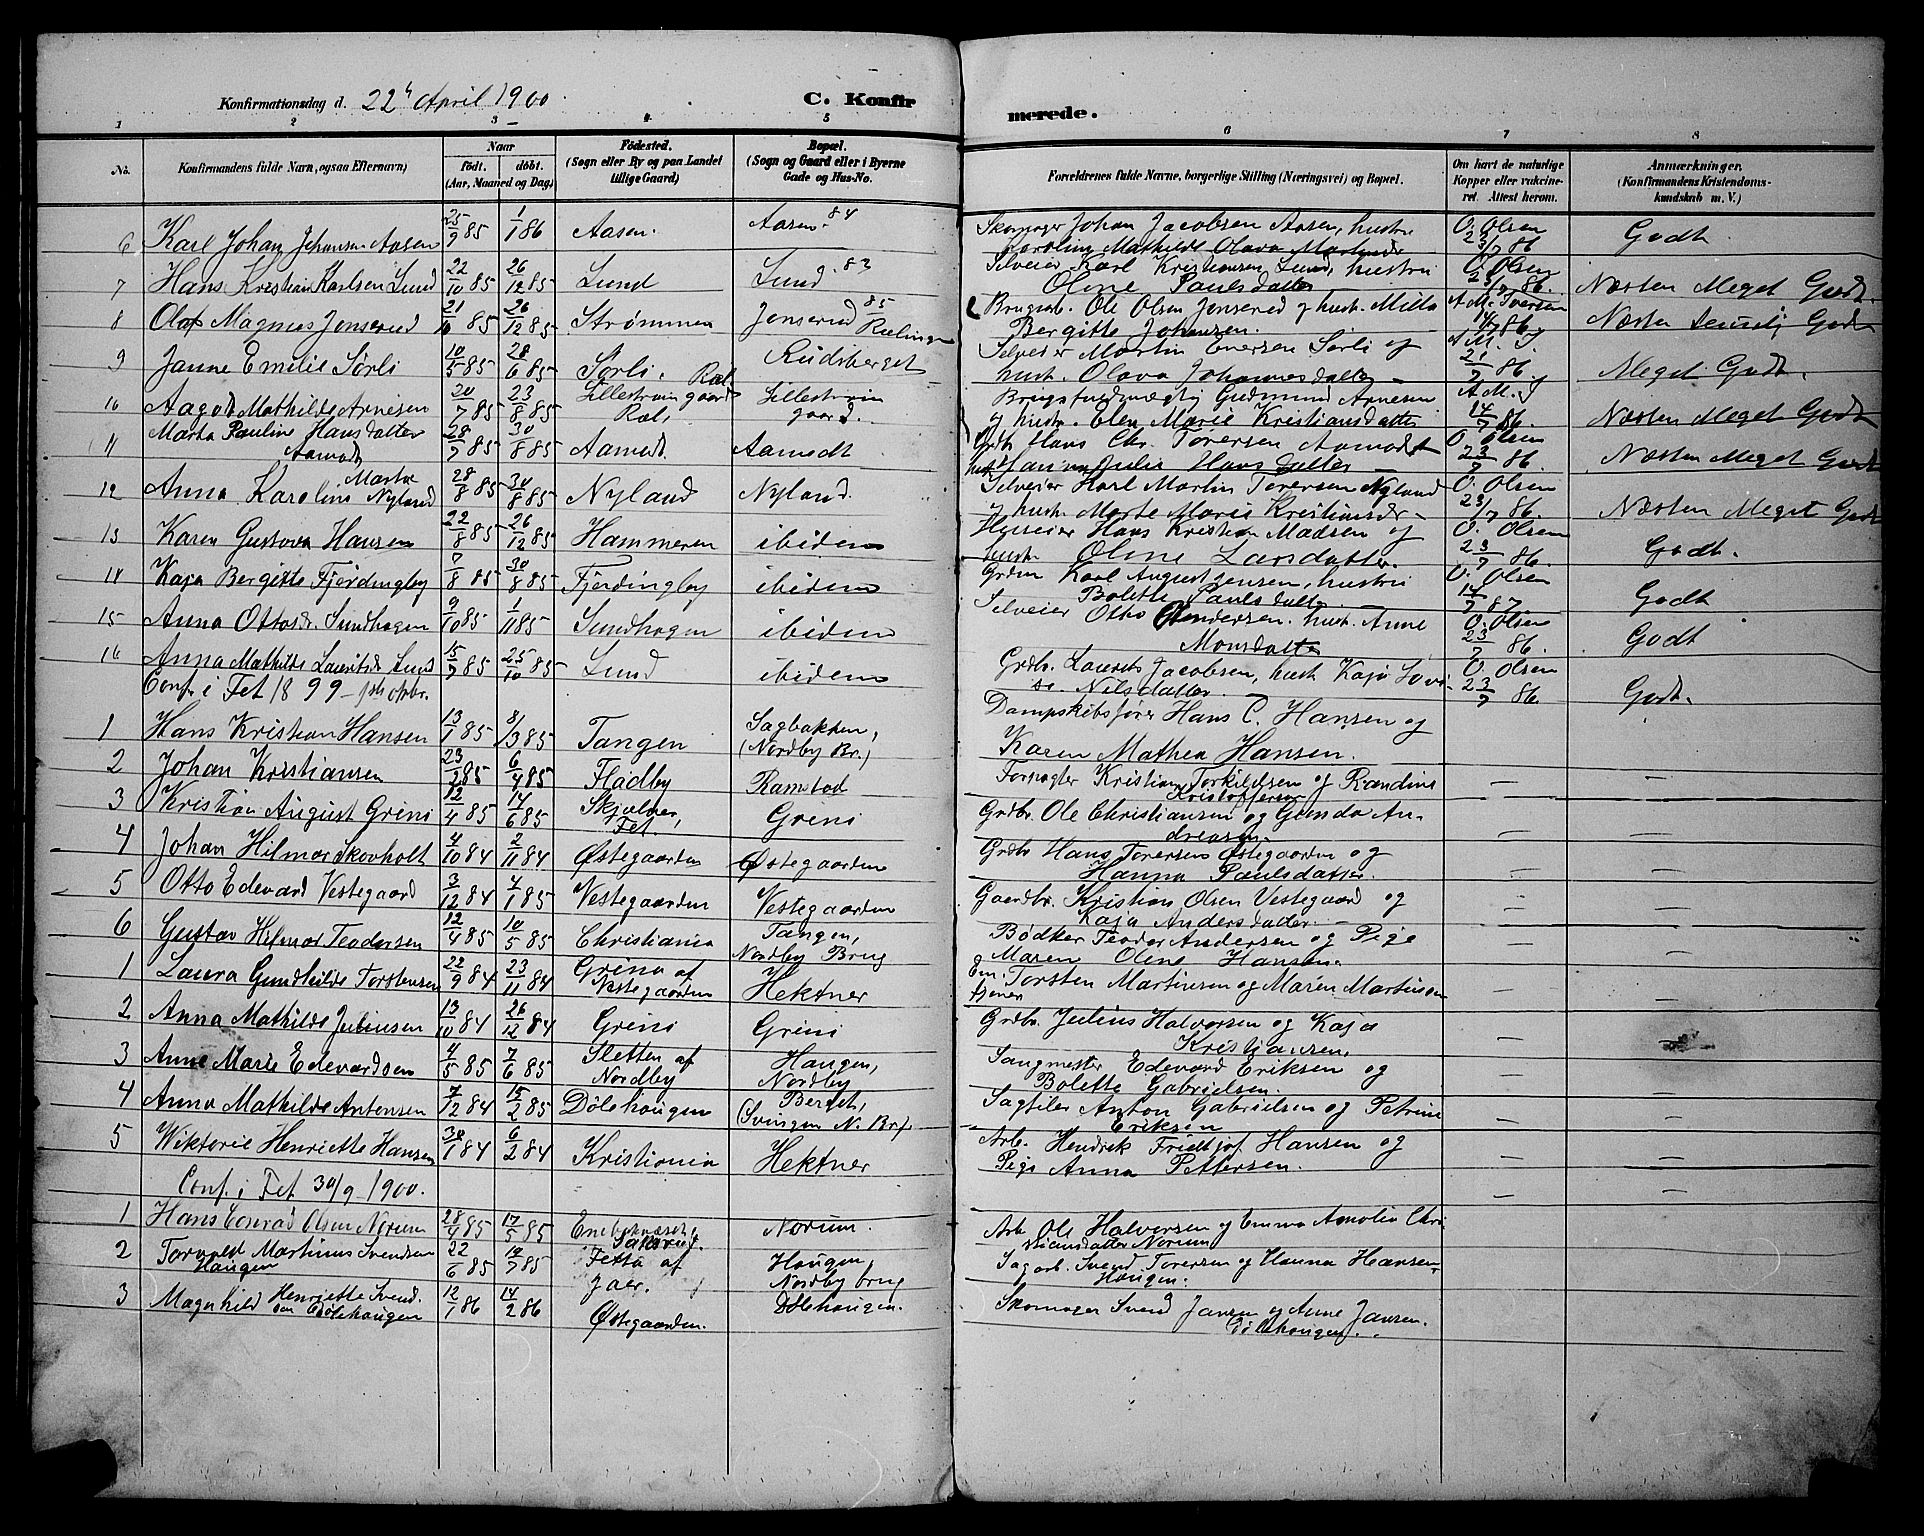 Konfirmationsdag d. 22 April 1900. C. Konfir merede.
1 2 3 4 5 6 7 8
No. Konfirmandens fulde Navn, ogsaa Efternavn) Naar födt. döbt. (Aar, Maaned og Dag) Födested. (Sogn eller By og paa Landet tillige Gaard) Bopæl. (Sogn og Gaard eller i Byerne Gade og Hus-No. Forældrenes fulde Navne, borgerlige Stilling (Næringsvei) og Bopæl. Om havt de naturlige Kopper eller vakcineret. Attest herom. Anmærkninger. (Konfirmandens Kristendomskundskab m. V.)
6 Karl Johan Johansen Aasen 25/9 85 1/1 86 Aasen. Aasen. 84 Skomager Johan Jacobsen Aasen, hustru Karoline Mathilde Olava O. Olsen 23/7 86 Godt
7 Hans Kristian Karlsen Lund 22/10 85 26/12 85 Lund Lund. 83 Selveier Karl Kristiansen Lund, hustru Oline Paulsdatter O. Olsen 23/7 86. Næsten Meget Godt.
8 Olaf Magnus Jenserud 21/10 85 26/12 85 Strømmen Jenserud 85 Rælingen Brugsarb. Ole Olsen Jenserud og hust. Milla Bergitte Johansen. A M. Iversen 14/7 86. Næsten Temmelig Godt
9 Janne Emilie Sørli 10/5 85 28/6 85 Sørli. Ræl. Rudsberget Selveier Martin Evensen Sørli og hust. Olava Johannesdatter A M. I 21/7 86. Meget Godt.
10 Aagot Mathilde Arnesen 20/7 85 23/8 85 Lillestrøm gaard Ræl. Lillestrøm gaard. Brugsfuldmægtig Gudmund Arnesen og hustr. Elen Marie Kristiansdatter A M. I 14/7 86. Næsten Meget Godt
11 Marta Pauline Hansdatter Aamodt 28/7 85 30/8 85 Aamodt Aamodt Grdbr. Hans Chr. Toresen Aamodt hust Julie Hansdatter O. Olsen 23/7 86. Næsten Meget Godt
12 Anna Karoline Marta Nyland 28/8 85 30/8 85 Nyland Nyland. Selveier Karl Martin Toresen Nyland og hust. Marte Marie Kristiansdr O. Olsen 23/7 86. Næsten Meget Godt
13 Karen Gustava Hansen 22/8 85 26/12 85 Hammeren ibidem Huseier Hans Kristian Madsen og hust. Oline Larsdatter O. Olsen 23/7 86. Godt.
14 Kaja Bergitte Fjerdingby 7/8 85 30/8 85 Fjerdingby ibidem Grdm Karl August Jensen, hustru Bolette Paulsdatter O. Olsen 14/7 87. Godt
15 Anna Ottosdr. Sundhagen 9/10 85 1/11 85 Sundhagen ibidem Selveier Otto Andersen. hust. Anne Monsdatter O. Olsen 23/7 86. Godt
16 Anna Mathilde Lauritsdr Lund 15/9 85 25/10 85 Lund ibidem Grdbr. Laurits Jacobsen, hust Kaja Lovise Nilsdatter. O. Olsen 23/7 86. Godt.
Conf. i Fet 1899
1 Hans Kristian Hansen 13/1 85 8/3 85 Tangen Sagbakken, (Nordby Br.) Dampskibsfører Hans C. Hansen og Karen Mathea Hansen. —
2 Johan Kristiansen 23/2 85 6/4 85 Fladby Ramstad Forpagter Kristian Torkildsen og Randine Kristoffersen — —
3 Kristian August Greni 12/4 85 14/6 85 Fet Greni Grdbr. Ole Christiansen og Gunda Andreasen. — —
4 Johan Hilmar Skovholt 4/10 84 2/11 84 Østegaarden Østegaarden Grdbr Hans Toresen Østegaarden og Hanna Paulsdatter. — —
5 Otto Edevard Vestegaard 3/12 84 4/1 85 Vestegaarden Vestegaarden Gaardbr. Kristian Olsen Vestegaard og Kaja Andersdatter. — —
6 Gustav Hilmar Teodorsen 12/4 85 10/5 85 Christiania Tangen, Nordby Brug Bødker Teodor Andersen og Pige Maren Oline Hansen. — —
1 Laura Gundhilde Torstensen 22/9 84 23/11 84 Grina af Vestegaarden Hektner Em. Torsten Martinsen og Maren Martinsen — —
2 Anna Mathilde Juliusen 13/10 84 26/12 84 Greni Greni Grdbr. Julius Halvorsen og Kaja Kristiansen. — —
3 Anne Marie Edevardsen 4/5 85 7/6 85 Sletten af Nordby Haugen, Nordby Saugmester Edevard Eriksen og Bolette Gabrielsen. — —
4 Anna Mathilde Antonsen 7/12 84 15/2 85 Dølehaugen Berget, (Svingen N. Br.) Sagfiler Anton Gabrielsen og Petrine Eriksen — —
5 Wiktorie Henriette Hansen 30/1 84 6/2 84 Kristiania Hektner Arb. Hendrik Fridtjof Hansen og Pige Anna Pettersen. — —
Conf. i Fet 30/9 1900. — —
1 Hans Conrad Olsen Norum 28/4 85 17/5 85 Enebak Norum. Arb Ole Halvorsen og Emma Amalia Christiansdatter Norum
2 Torvald Martinus Svendsen Haugen 22/6 85 19/7 85 Fetta af Jaer. Haugen, Nordby brug Sagarb. Svend Toresen og Hanna Hansen, Haugen.
3 Magnhild Henriette Svendsen Dølehaugen 12/1 86 14/2 86 Østegaarden. Dølehaugen. Skomager Svend Jansen og Anne Jansen. Dølehaugen.